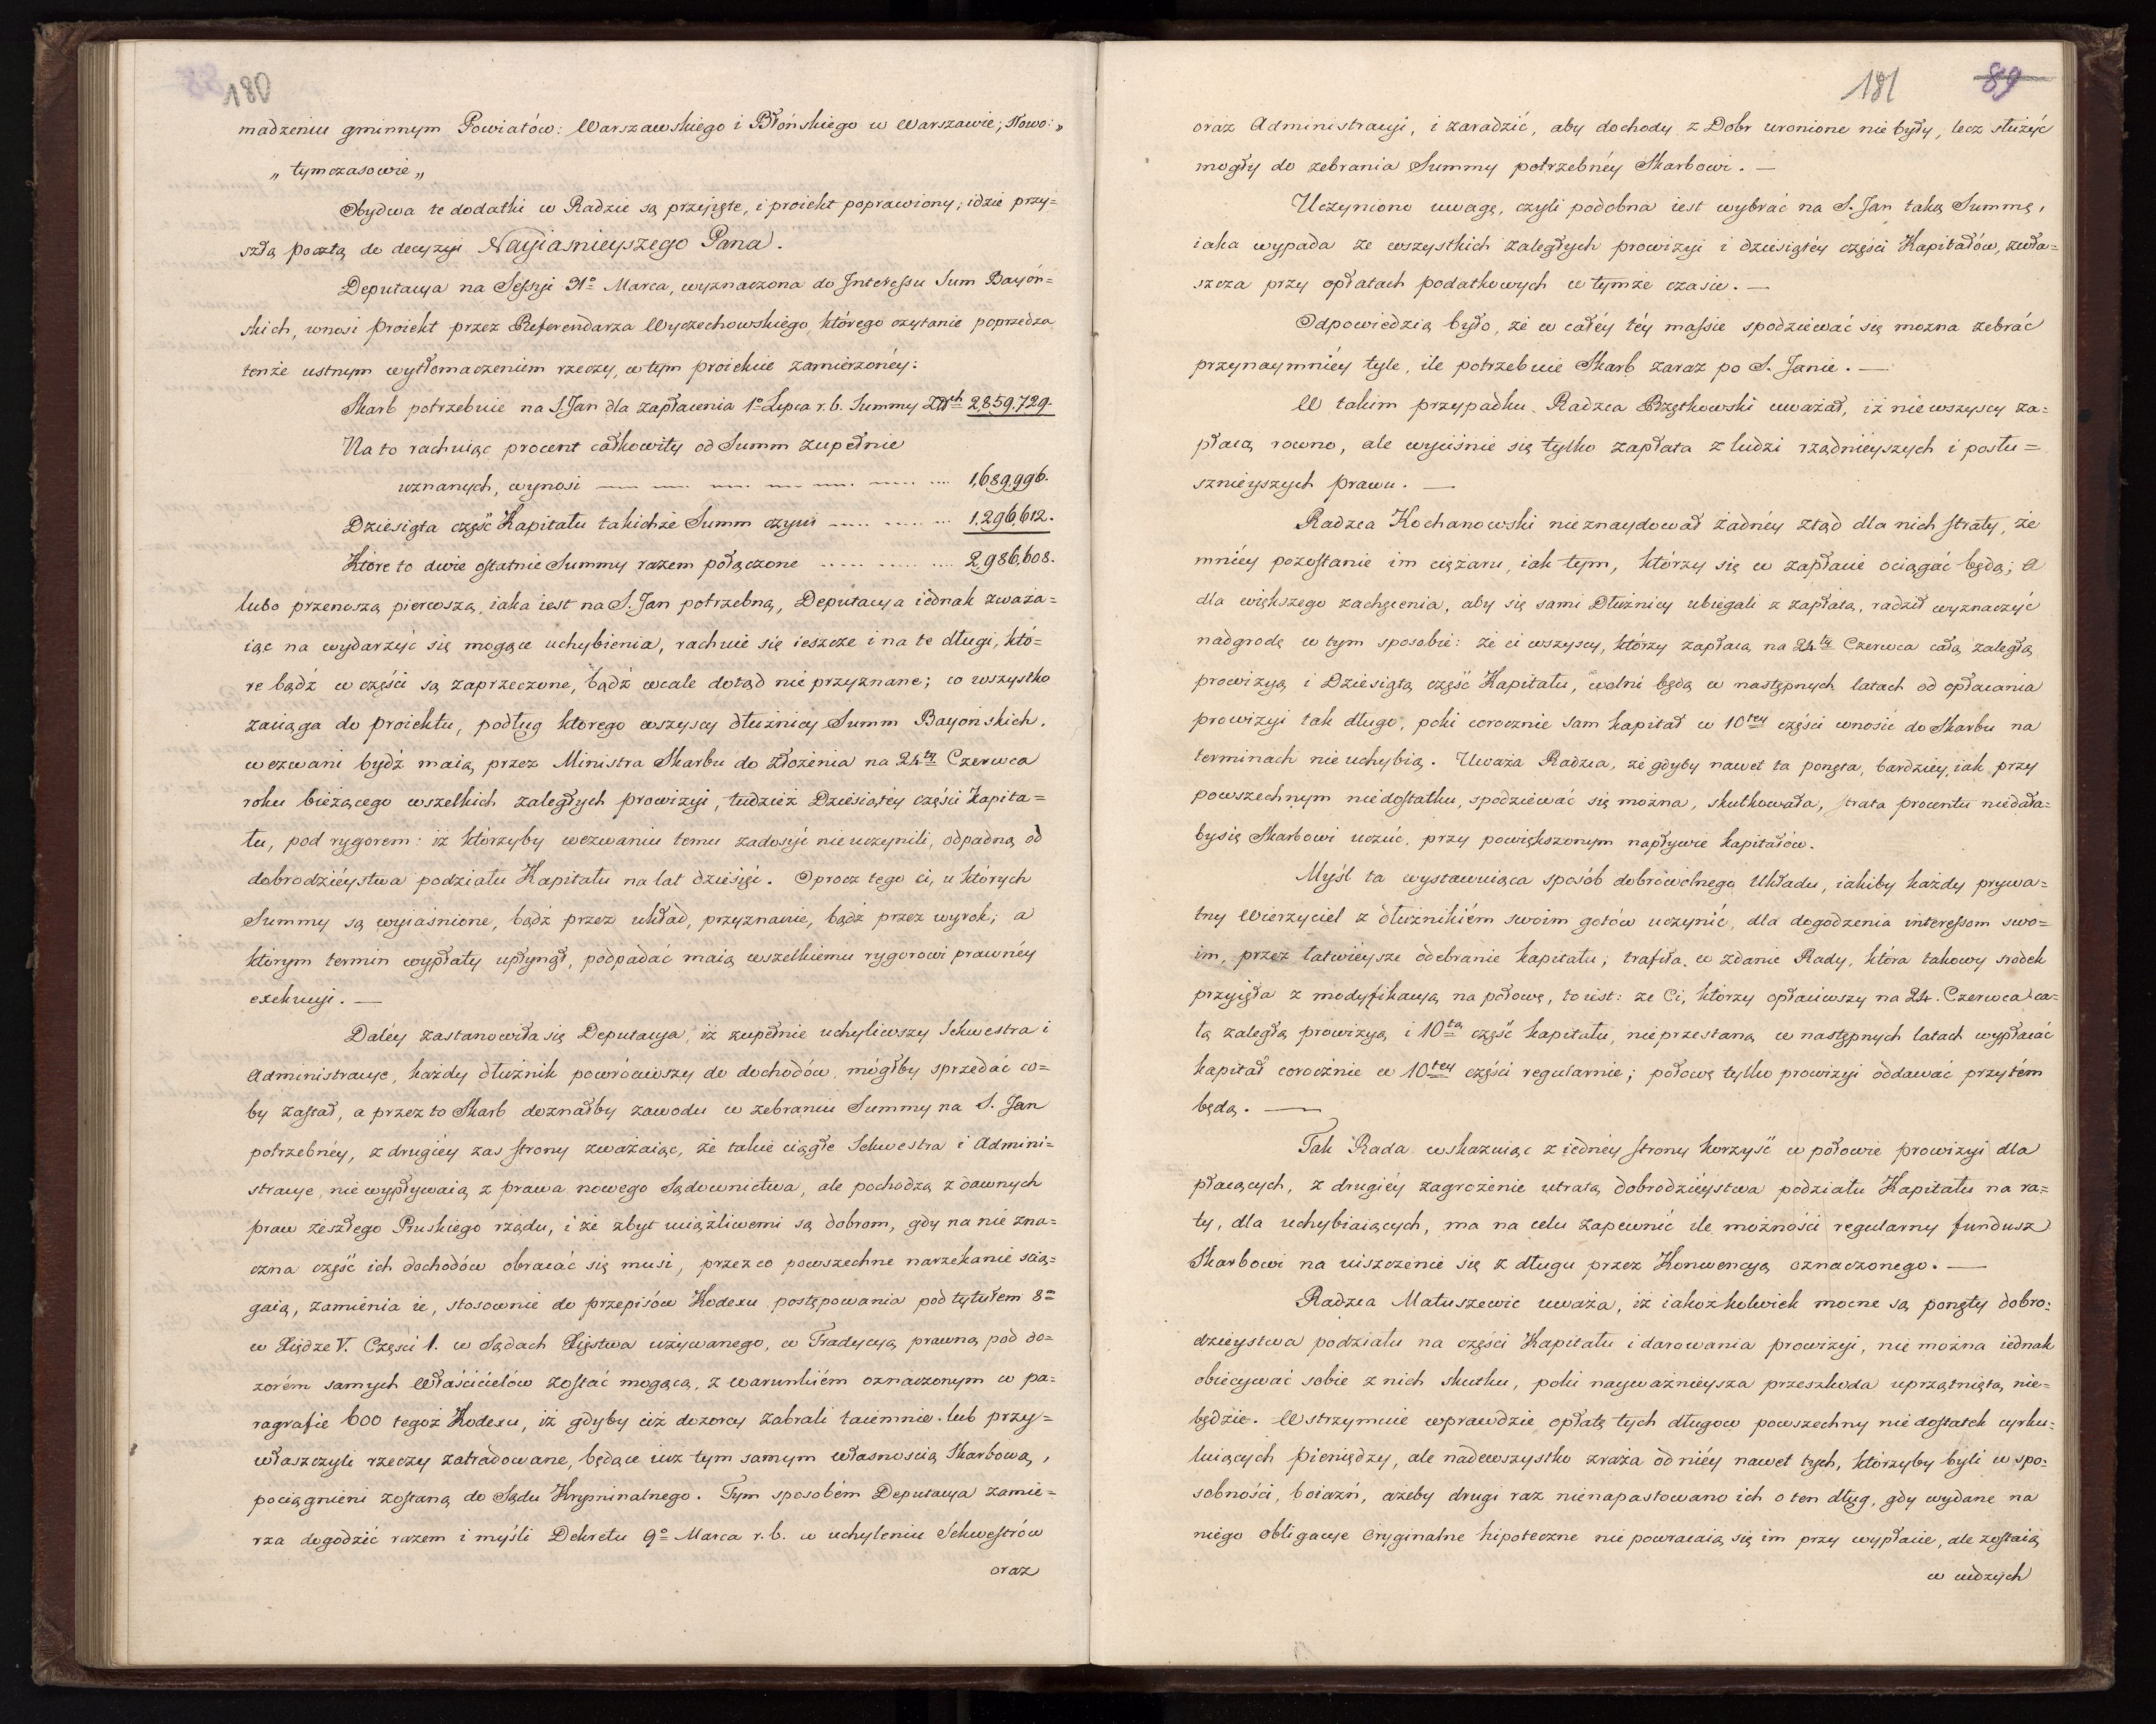 88 180
madzeniu gminnym Powiatów: Warszawskiego i Błońskiego w Warszawie; Słowo: „
„ tymczasowie „
Obydwa te dodatki w Radzie są przejęte, i proiekt poprawiony; idzie przy=
szłą pocztą do decyzyi Nayiasnieyszego Pana.
Deputacya na Sessyi 31º Marca, wyznaczona do Interessu Sum Bayoń=
skich, wnosi proiekt przez Referendarza Wyczechowskiego, którego czytanie poprzedza
tenże ustnym wytłomaczeniem rzeczy, w tym proiekcie zamierzonéy:
Skarb potrzebuie na S. Jan dla zapłacenia 1º Lipca r. b. Summy Złłch 2,859,729.
Na to rachuiąc procent całkowity od Summ zupełnie
uznanych, wynosi 1,689,996.
Dziesięta część Kapitału takichże Summ czyni 1,296,612.
Które to dwie ostatnie Summy razem połączone 2,986,608.
lubo przenoszą pierwszą, iaka iest na S. Jan potrzebną, Deputacya iednak zważa=
iąc na wydarzyć się mogące uchybienia, rachuie się ieszcze i na te długi, któ=
re bądź w części są zaprzeczone, bądź wcale dotąd nie przyznane; co wszystko
zaciąga do proiektu, podług którego wszyscy dłużnicy Summ Bayońskich,
wezwani bydź maią przez Ministra Skarbu do złożenia na 24ty Czerwca
roku bieżącego wszelkich zaległych prowizyi, tudzież Dziesiątéy części Kapita=
łu, pod rygorem: iż którzyby wezwaniu temu zadosyć nie uczynili, odpadną od
dobrodzieystwa podziału Kapitału na lat dziesięć. Oprocz tego ci, u których
Summy są wyiaśnione, bądź przez układ, przyznanie, bądź przez wyrok; a
którym termin wypłaty upłynął, podpadać maią wszelkiemu rygorowi prawnéy
exekucyi. —
Daléy zastanowiła się Deputacya, iż zupełnie uchyliwszy Sekwestra i
Administracye, każdy dłużnik powróciwszy do dochodów, mógłby sprzedać co=
by zastał, a przez to Skarb doznałby zawodu w zebraniu Summy na S. Jan
potrzebnéy, z drugiéy zas strony zważaiąc, że takie ciągłe Sekwestra i Admini=
stracye, nie wypływaią z prawa nowego Sądownictwa, ale pochodzą z dawnych
praw zeszłego Pruskiego rządu, i że zbyt uciążliwemi są dobrom, gdy na nie zna=
czna część ich dochodów obracać się musi, przez co powszechne narzekanie scią=
gaią, zamienia ie, stosownie do przepisów Kodexu postępowania pod tytułem 8º
w Xiędze V. Części 1. w Sądach Xięstwa używanego, w Tradycyą prawną pod do=
zorém samych Właścicielów zostać mogącą, z warunkiém oznaczonym w pa=
ragrafie 600 tegoż Kodexu, iż gdyby ciż dozorcy zabrali taiemnie lub przy=
właszczyli rzeczy zatradowane, będące iuz tym samym własnoscią Skarbową,
pociągnieni zostaną do Sądu Kryminalnego. Tym sposobém Deputacya zamie=
rza dogodzić razem i myśli Dekretu 9º Marca r. b. w uchyleniu Sekwestrów
oraz
181 89
oraz Administracyi, i zaradzić, aby dochody z Dobr uronione nie były, lecz służyć
mogły do zebrania Summy potrzebnéy Skarbowi. —
Uczyniono uwagę, czyli podobna iest wybrać na S. Jan taką Summę,
iaka wypada ze wszystkich zaległych prowizyi i dziesiątéy części Kapitałów, zwła=
szcza przy opłatach podatkowych w tymże czasie. —
Odpowiedzią było, że w całéy téy massie spodziewać się mozna zebrać
przynaymniéy tyle, ile potrzebuie Skarb zaraz po S. Janie. —
W takim przypadku Radzca Rzętkowski uważał, iż nie wszyscy za=
płacą rowno, ale wyciśnie się tylko zapłata z ludzi rządnieyszych i posłu=
sznieyszych prawu. —
Radzca Kochanowski nieznaydował żadnéy ztąd dla nich straty, że
mniéy pozostanie im ciężaru, iak tym, którzy się w zapłacie ociągać będą; a
dla większego zachęcenia, aby się sami Dłużnicy ubiegali z zapłatą, radził wyznaczyć
nadgrodę w tym sposobie: że ci wszyscy, którzy zapłacą na 24ty Czerwca całą zaległą
prowizyą i Dziesiątą część Kapitału, wolni będą w następnych latach od opłacania
prowizyi tak długo, poki corocznie sam kapitał w 10téy części wnosić do Skarbu na
terminach nie uchybią. Uważa Radzca, że gdyby nawet ta ponęta, bardziey, iak przy
powszechnym niedostatku, spodziewać się można, skutkowała, strata procentu niedała=
bysię Skarbowi uczuć, przy powiększonym napływie kapitałów.
Myśl ta wystawuiąca sposób dobrowolnego Układu, iakiby każdy prywa=
tny Wierzyciel z dłużnikiém swoim gotów uczynić, dla dogodzenia interessom swo=
im, przez łatwieysze odebranie kapitału; trafiła w zdanie Rady, która takowy srodek
przyięła z modyfikacyą na połowę, to iest: ze Ci, którzy opłaciwszy na 24. Czerwca ca=
łą zaległą prowizyą i 10tą część kapitału, nieprzestaną w następnych latach wypłacać
kapitał corocznie w 10téy części regularnie; połowę tylko prowizyi oddawać przytém
będą. —
Tak Rada wskazuiąc z iednéy strony korzyść w połowie prowizyi dla
płacących, z drugiéy zagrożenie utratą dobrodzieystwa podziału Kapitału na ra=
ty, dla uchybiaiących, ma na celu zapewnić ile możności regularny fundusz
Skarbowi na uiszczenie się z długu przez Konwencyą oznaczonego. —
Radzca Matuszewic uważa, iż iakożkolwiek mocne są ponęty dobro=
dzieystwa podziału na części Kapitału i darowania prowizyi, nie można iednak
obiecywać sobie z nich skutku, poki nayważnieysza przeszkoda uprzątnięta nie=
będzie. Wstrzymuie wprawdzie opłatę tych długow powszechny niedostatek cyrku=
luiących pieniędzy, ale nadewszystko zraża od niéy nawet tych, którzyby byli w spo=
sobności, boiaźń, ażeby drugi raz nienapastowano ich o ten dług, gdy wydane na
niego obligacye oryginalne hipoteczne nie powracaią się im przy wypłacie, ale zostaią
w cudzych